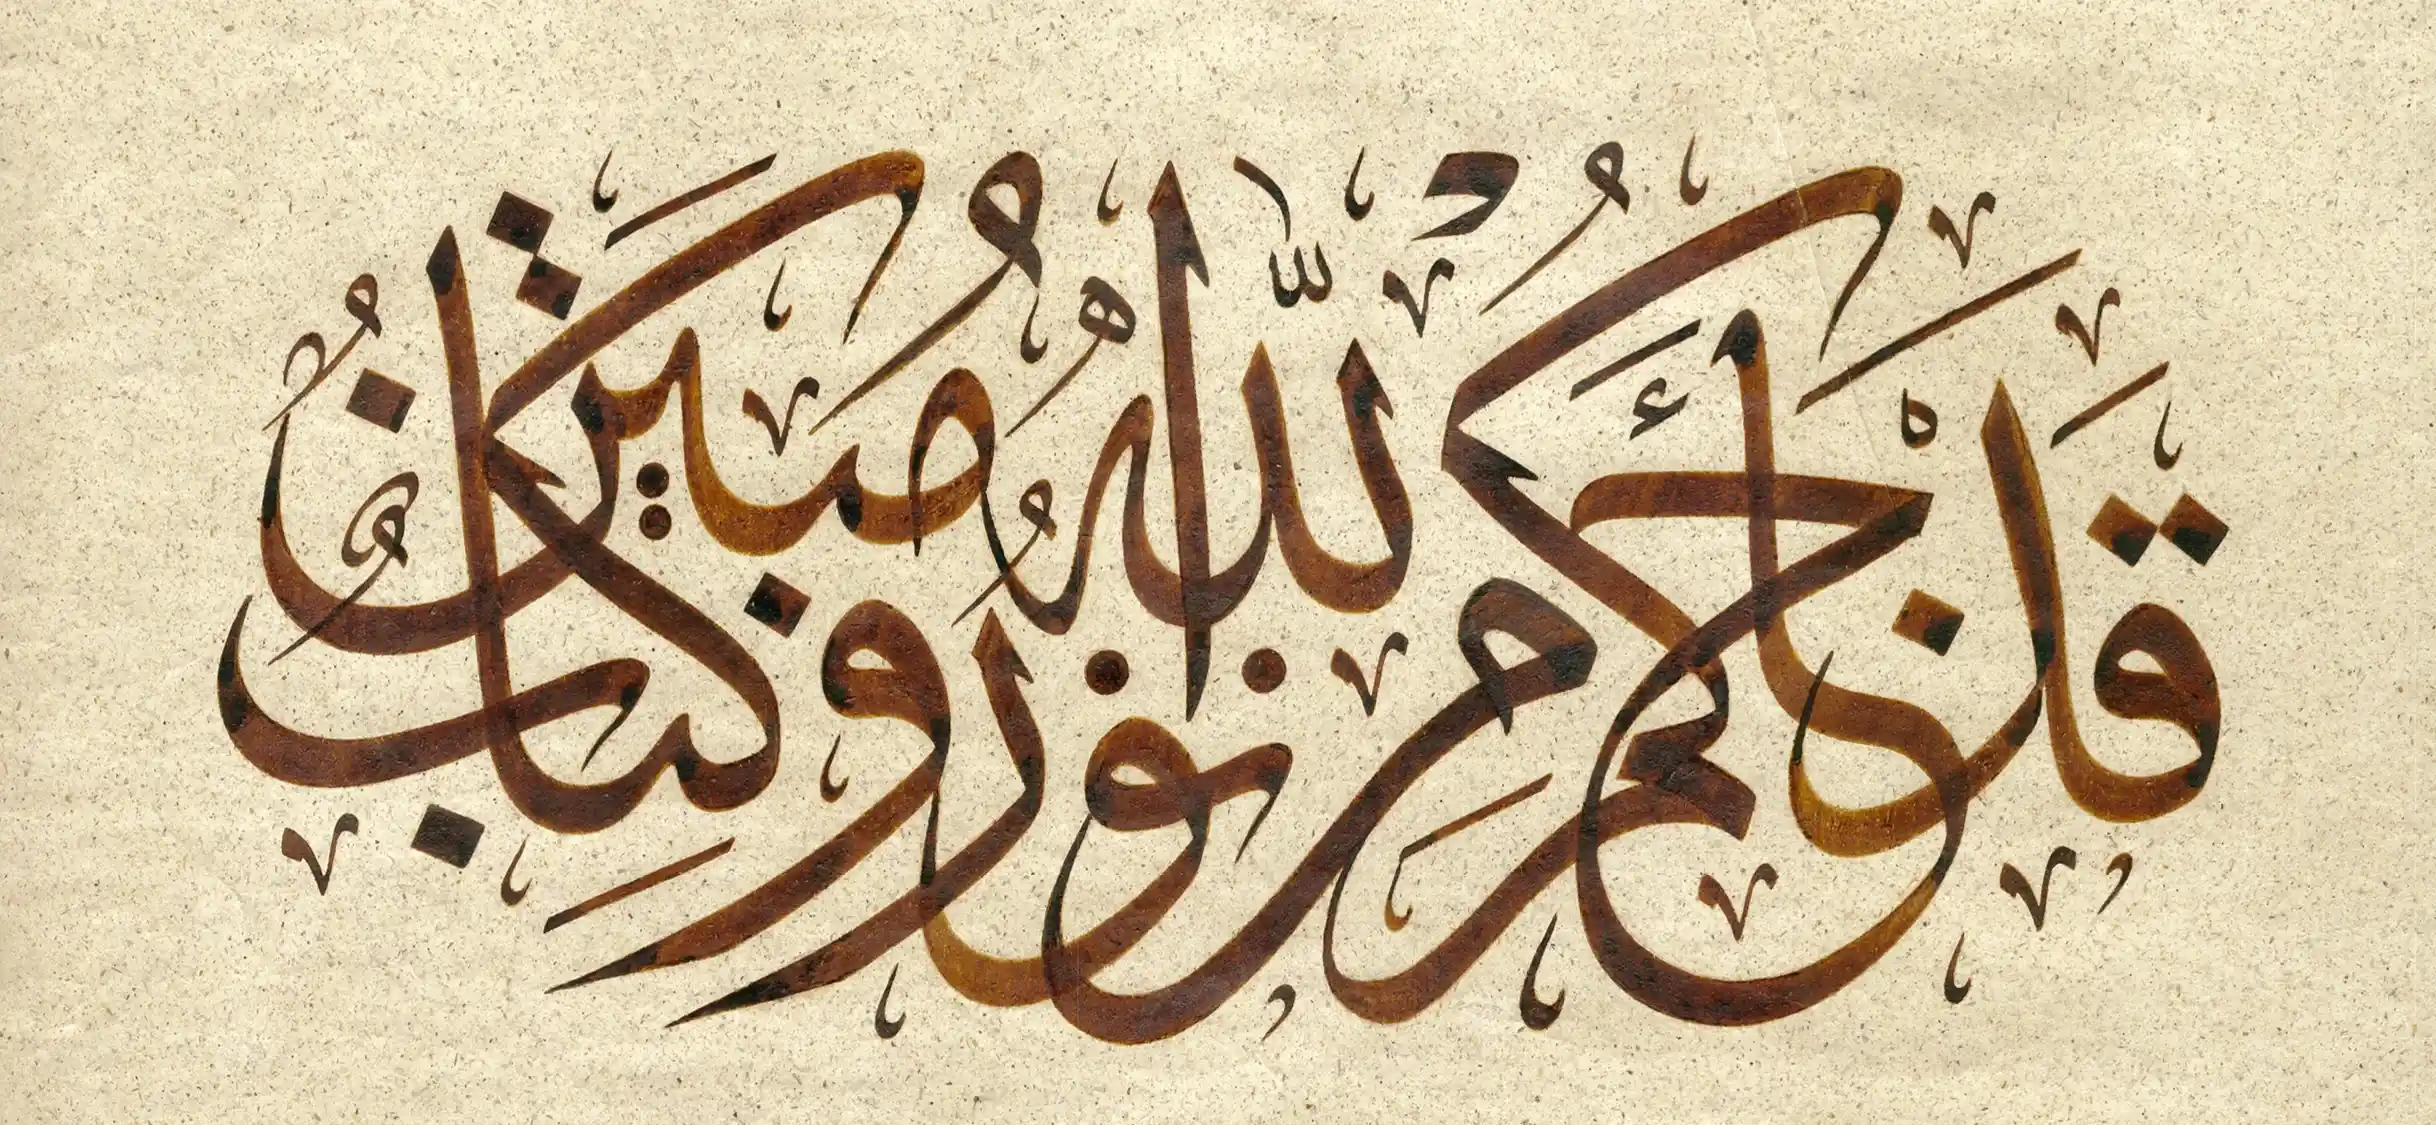 قَدْ جَاءَكُمْ مِنَ اللّٰهِ نُورٌ وَكِتَابٌ مُبِينٌ